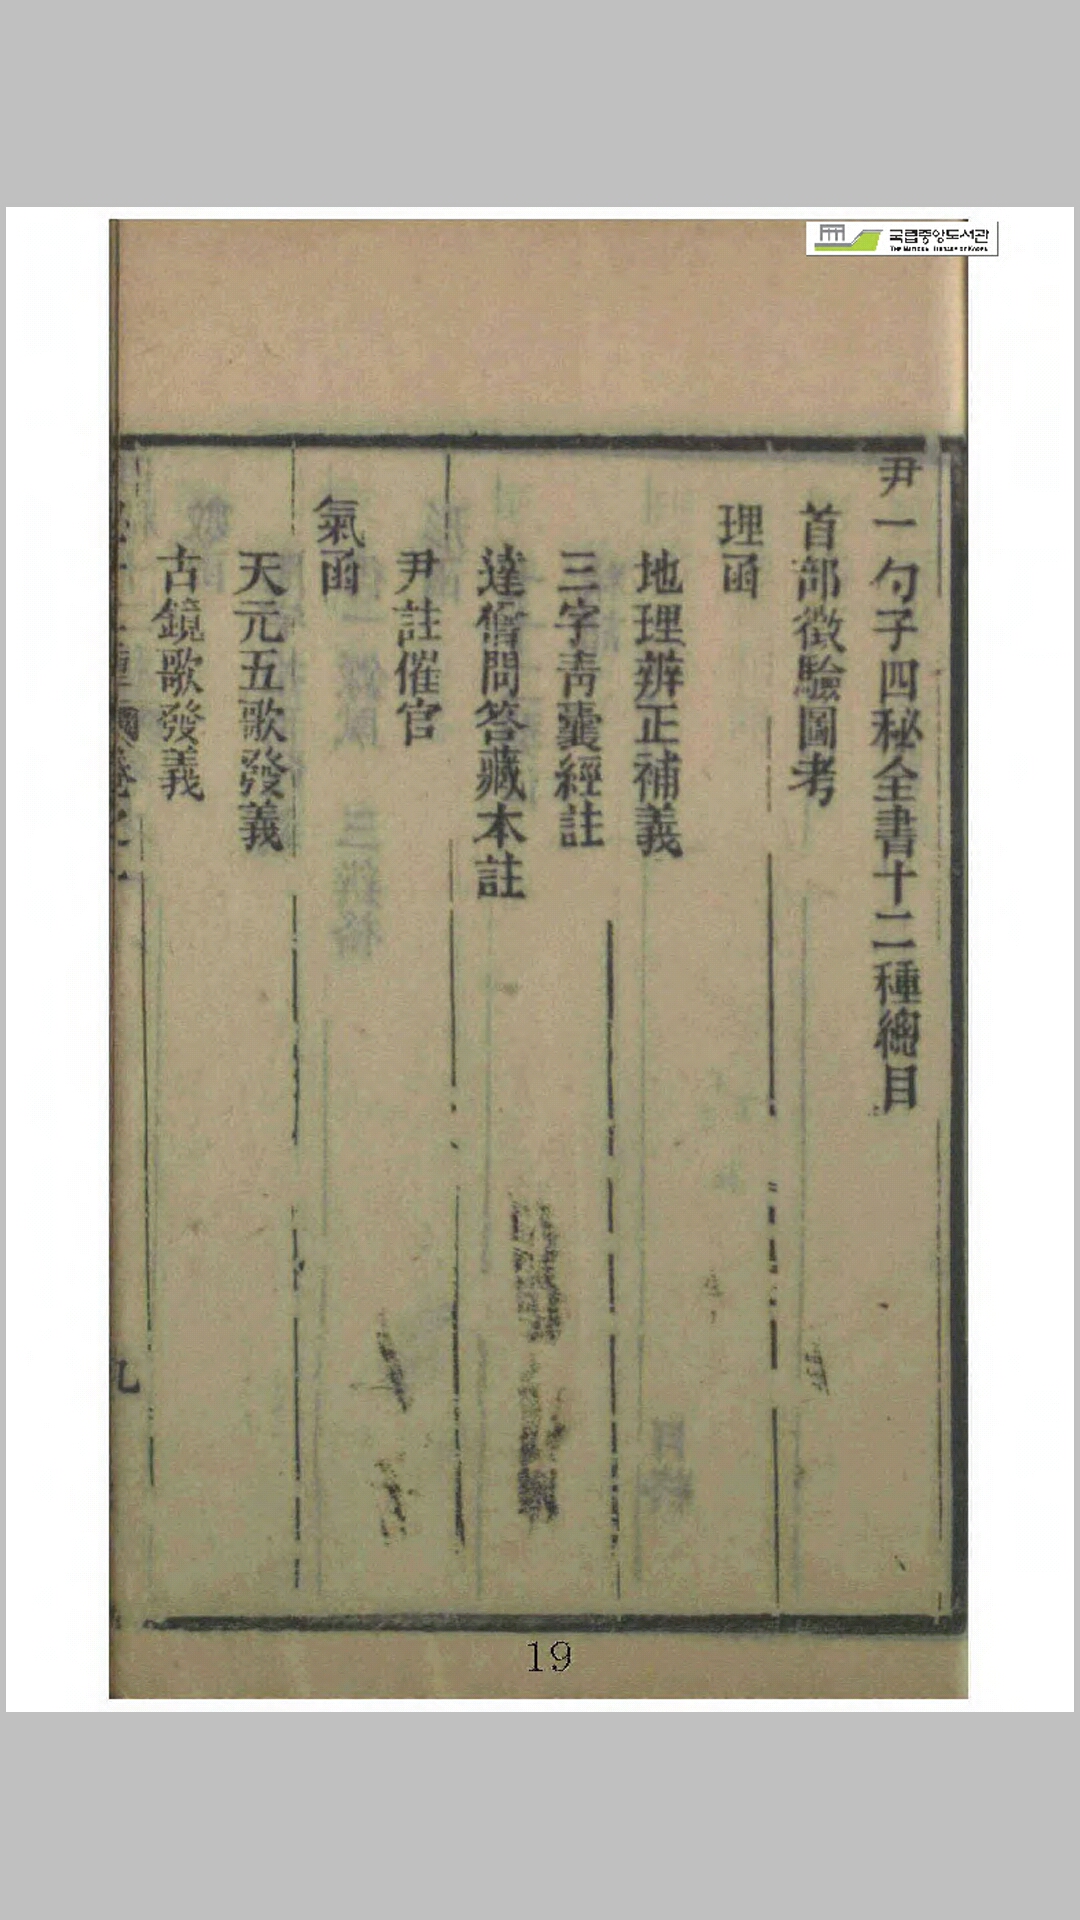 국립중앙도서관
THE NATIONAL LIBRARY OF KOREA
尹一勺子四秘全書十二種總目
首部徴驗圖考
理函
地理辨正補義
三字青囊經註
達僧問答藏本註
尹註催官
氣函
天元五歌發義
古鏡歌發義
九
19